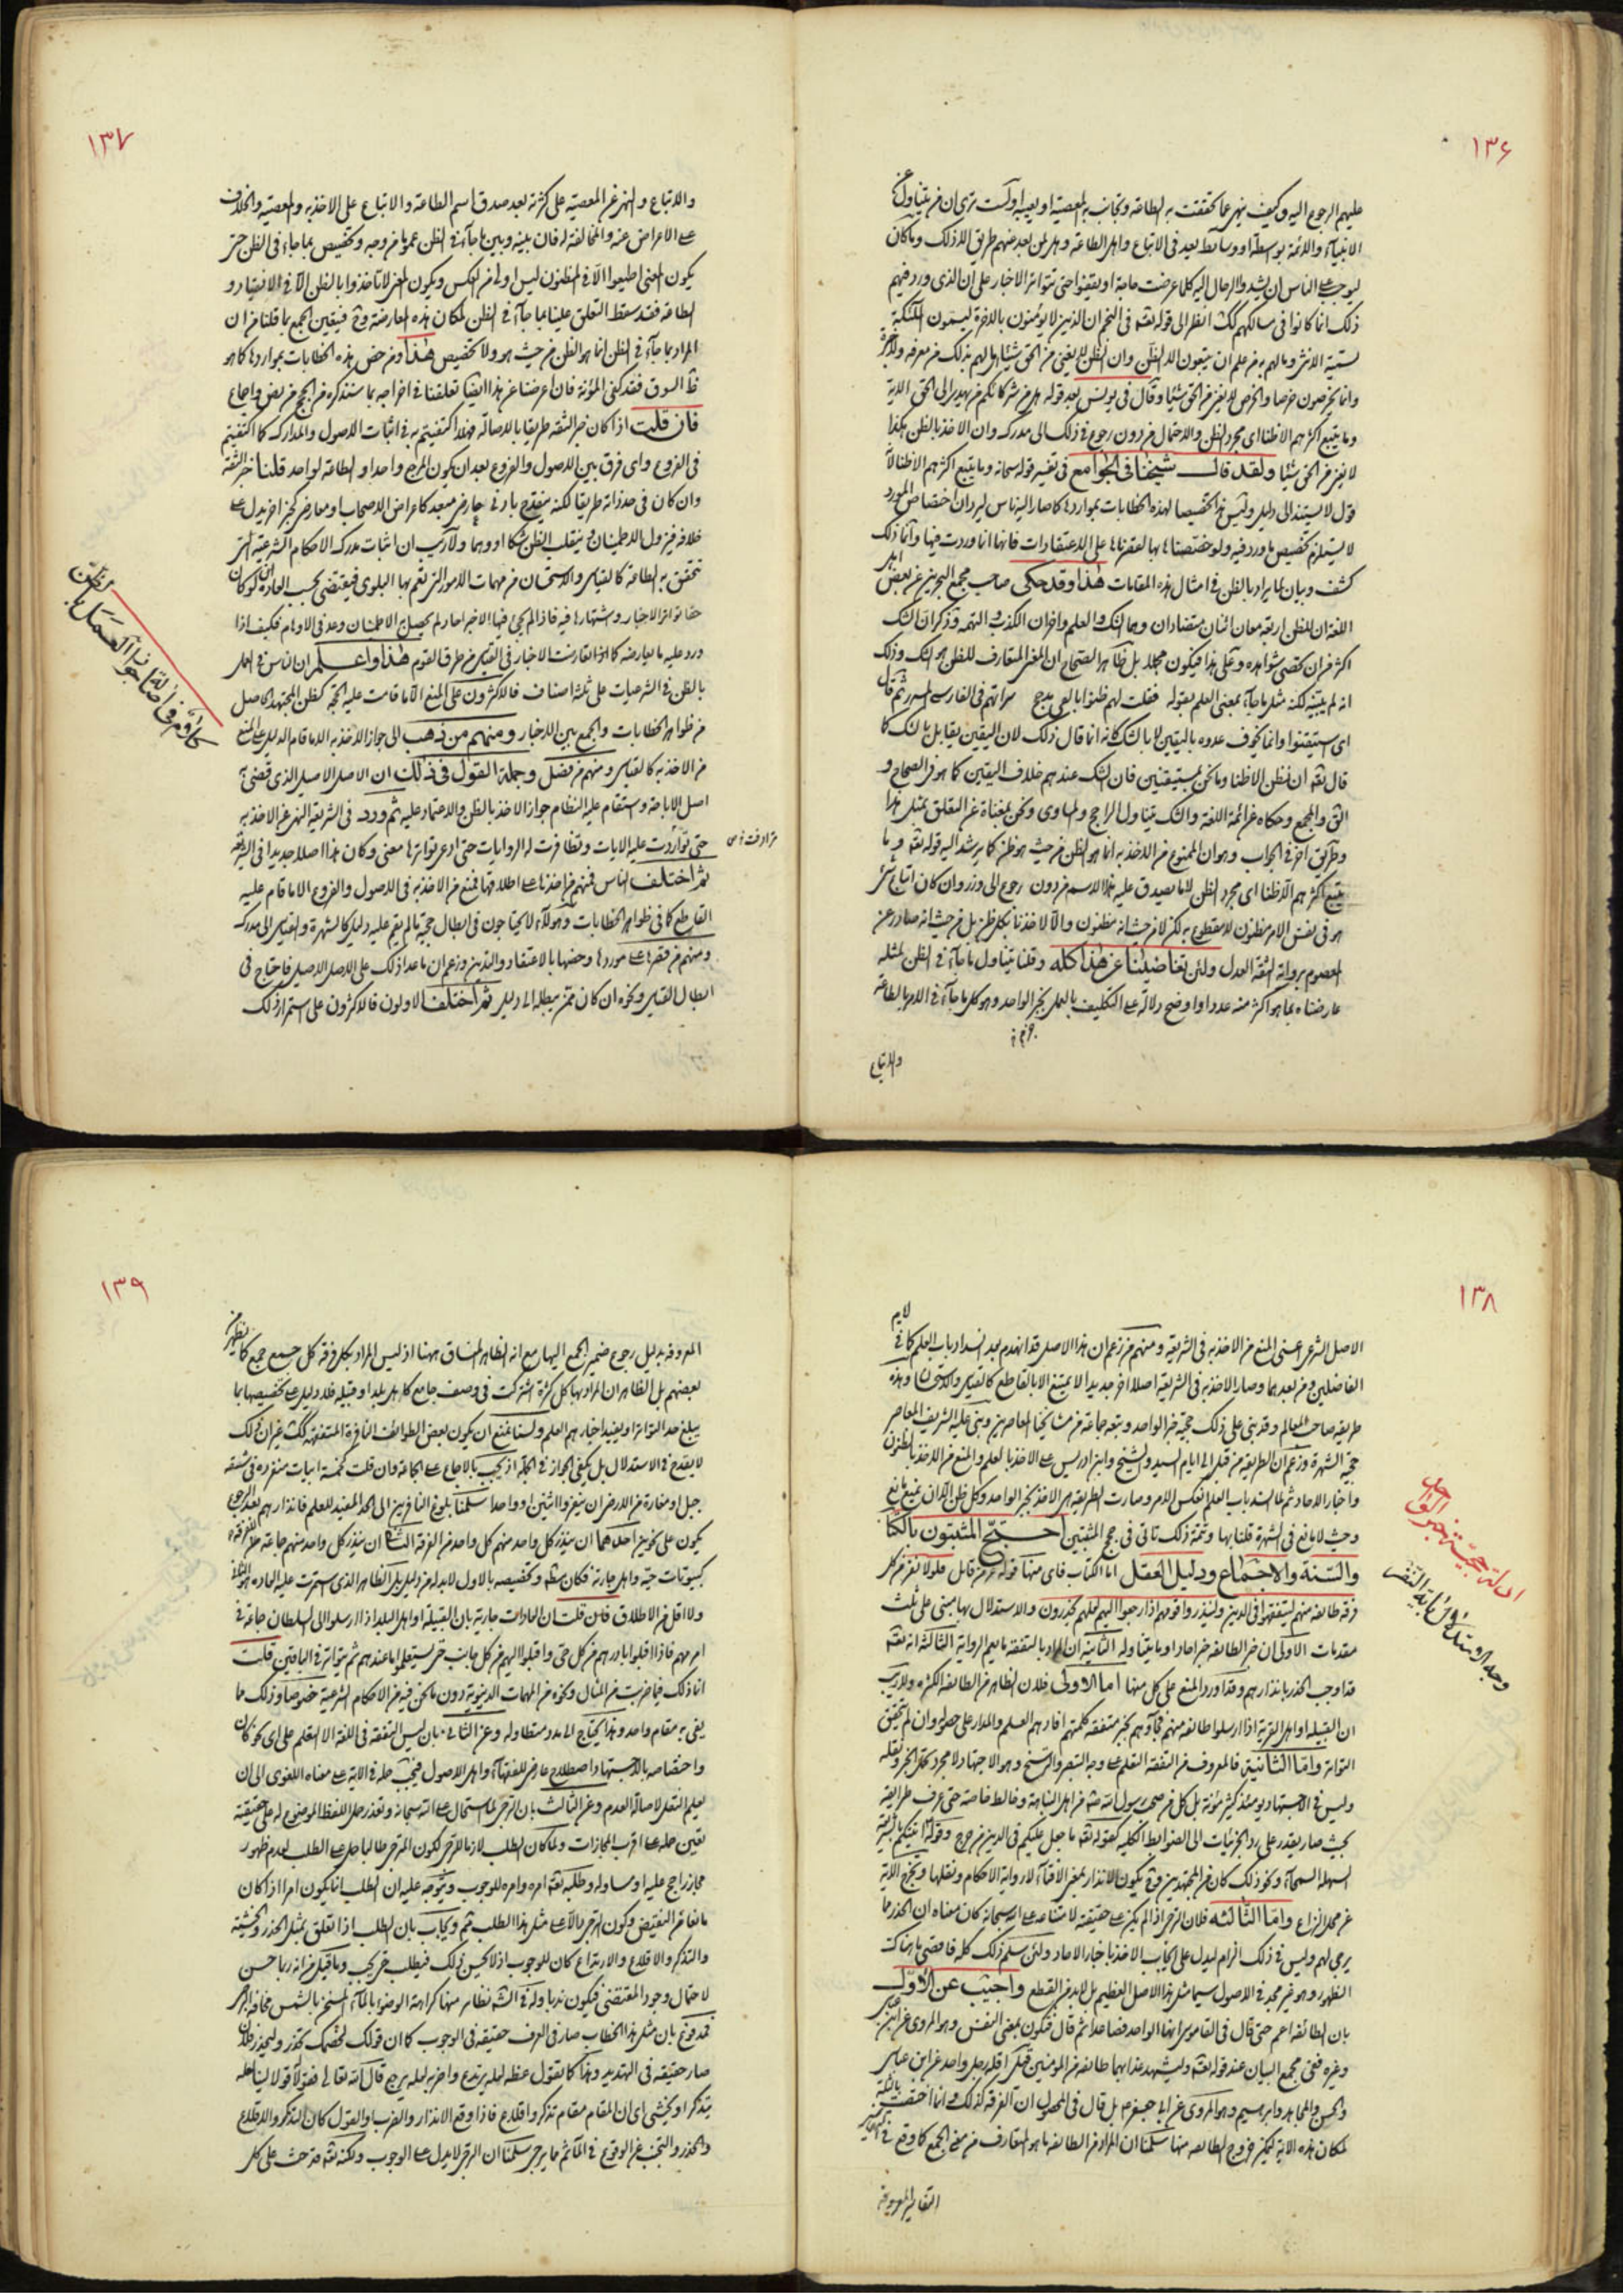 ١٣۶
عليهم الرجوع اليه وكيف ينهى عما تحققت به الطاعة وتجانب به المعصية
الانبيآء والائمة بواسطة او وسايط يعد فى الاتباع واهل الطاعة
ليوجب على الناس ان يشدوا الرحال اليه كلما عرضت حاجة او يقيفوا حتى تتواتر الاخبار على ان الذى ورد فيهم
ذلك انما كانوا فى مسالكهم انظر الى قوله تعه فى النجم ان الذين لا يؤمنون بالاخرة ليسمون الملئكة
تسمية الانثى وما لهم به من علم ان يتبعون الا الظن وان الظن لا يغنى من الحق شيئا
وانما يخرصون خرصا والخرص لا يغنى من الحق شيئا وقال فى يونس بعد قوله هل من شركائكم من يهدى الى الحق الاية
وما يتبع اكثرهم الا ظنا اى مجرد الظن والاحتمال من دون رجوع فى ذلك الى مدرك وان الاخذ بالظن هكذا
لا يغنى من الحق شيئا ولقد قال شيخنا فى الجوامع فى تفسير قوله سبحانه وما يتبع اكثرهم الا ظنا لانه
قول لا يستند الى دليل وليس هذا تخصيصا لهذه الخطابات بمواردها كما صار اليه ناس
لا يستلزم تخصيص ما ورد فيه ولو خصصناها بها لقصرناها على الاعتقادات فانها انما وردت فيها وانما ذلك
كشف وبيان لما يراد بالظن فى امثال هذه المقامات هذا وقد حكى صاحب مجمع البحرين عن بعض
اللغة ان للظن اربعة معان اثنان متضادان وهما الشك والعلم واخران الكذب والتهمة وذكر ان الشك
اكثر من ان تحصى شواهده وعلى هذا فيكون مجملا بل ظاهر الصحاح ان المعنى المتعارف للظن هو الشك وذلك
انه لم يثبته لكنه مثل ما جاء بمعنى العلم بقوله فقلت لهم ظنوا بالفى مدجج سراتهم فى الفارسى المسرد ثم قال
اى استيقنوا وانما يخوف عدوه باليقين لا بالشك كانه انما قال ذلك لان اليقين يقابل بالشك كما
قال تعه ان نظن الا ظنا وما نحن بمستيقنين فان الشك عندهم خلاف اليقين كما هو فى الصحاح و
المجمع وحكاه عن ائمة اللغة والشك يتناول الراجح والمساوى ونحن بمغناة عن التعلق بمثل هذا
وطريق اخر فى الجواب وهو ان الممنوع من الاخذ به انما هو الظن من حيث هو ظن كما يرشد اليه قوله تعه وما
يتبع اكثرهم الا ظنا اى مجرد الظن لا ما يصدق عليه هذا الاسم من دون رجوع الى
هو فى نفس الامر مظنون لا مقطوع به لكن لا من حيث انه مظنون والا لاخذنا بكل ظن بل من حيث انه صادر عن
المعصوم برواية الثقة العدل ولئن تغاضينا عن هذا كله وقلنا يتناول ما جاء فى الظن لمثله
عارضناه بما هو اكثر منه عددا واوضح دلالة على التكليف بالعمل بخبر الواحد وهو كل ما جاء فى الامر بالطاعة
والاتباع
١٣٧
والاتباع والنهى عن المعصية على كثرته بعد صدق اسم الطاعة والاتباع على الاخذ به والمعصية والخلاف
على الاعراض عنه والمخالفة له فان بينه وبين ما جاء فى الظن عموما من وجه وتخصيص بما جاء فى الظن حتى
يكون المعنى اطيعوا الا فى المظنون ليس اولى من العكس ويكون المعنى لا تاخذوا بالظن الا فى الانقياد و
الطاعة فقد سقط التعلق علينا بما جاء فى الظن لمكان هذه المعارضة وح فيتعين الجمع بما قلنا من ان
المراد بما جاء فى الظن انما هو الظن من حيث هو ولا تخصيص هذا ومن خص هذه الخطابات بمواردها كما هو
ظ السوق فقد كفى المؤنة فان اعرضنا عن هذا ايضا تعلقنا فى اخراجه بما سنذكره من الحجج من نص واجماع
فان قلت اذا كان خبر الثقة طريقا بالاصالة فهلا اكتفيتم به فى اثبات الاصول والمدارك كما اكتفيتم
فى الفروع واى فرق بين الاصول والفروع بعد ان يكون المرجع واحدا والطاعة لواحد قلنا خبر الثقة
وان كان فى حد ذاته طريقا لكنه ينقدح بادنى عارض مبعد كاعراض الاصحاب ومعارض كخبر اخر يدل على
خلافه فيزول الاطمينان وينقلب الظن شكا او وهما ولا ريب ان اثبات مدرك الاحكام الشرعية التى
تتحقق به الطاعة كالقياس والاستحسان من مهمات الامور التى تعم بها البلوى فيقتضى بحسب العادة
حقا تواتر الاخبار واشتهارها فيه فاذا لم يجئ فيها الا خبر احاد لم يحصل الاطمينان وعد فى الاوهام فكيف اذا
ورد عليه ما يعارضه كما اذا تعارضت الاخبار فى القياس من طرق القوم هذا واعلم ان الناس فى العمل
بالظن فى الشرعيات على ثلثة اصناف فالاكثرون على المنع الا ما قامت عليه الحجة كظن المجتهد الحاصل
من ظواهر الخطابات والجمع بين الاخبار ومنهم من ذهب الى جواز الاخذ به الا ما قام الدليل على المنع
من الاخذ به كالقياس ومنهم من فصل وجملة القول فى ذلك ان الاصل الاصيل الذى قضى به
اصل الاباحة واستقام عليه النظام جواز الاخذ بالظن والاعتماد عليه ثم ورد فى الشريعة النهى عن الاخذ به
حتى تواردت عليه الايات وتظافرت له الروايات حتى ادعى تواترها معنى وكان هذا اصلا جديدا فى الشريعة
ثم اختلف الناس فمنهم من اخذها على اطلاقها فمنع من الاخذ به فى الاصول والفروع الا ما قام عليه
القاطع كما فى ظواهر الخطابات وهؤلاء لا يحتاجون فى ابطال حجية ما لم يقم عليه دليل كالشهرة والقياس الى مدرك
ومنهم من قصرها على موردها وخصها بالاعتقاد والتدين وزعم ان ما عدا ذلك على الاصل الاصيل فاحتاج فى
ابطال القياس ونحوه ان كان ممن يبطله الى دليل ثم اختلف الاولون فالاكثرون على استمرار ذلك
١٣٨
الاصل الشرعى اعنى المنع من الاخذ به فى الشريعة ومنهم من زعم ان هذا الاصل قد انهدم بعد انسداد باب العلم كما فى
الفاضلين ومن بعدهما وصار الاخذ به فى الشريعة اصلا اخر جديدا لا يمتنع الا بالقاطع كالقياس والاستحسان وهذه
طريقة صاحب المعالم وقد بنى على ذلك حجية خبر الواحد وتبعه جماعة من مشايخنا المعاصرين وبنى عليه الشريف المعاصر
حجية الشهرة وزعم ان الطريقة من قبل الى ايام السيد والشيخ وابن ادريس على الاخذ بالعلم والمنع من الاخذ بالظنون
واخبار الاحاد ثم لما انسد باب العلم انعكس الامر وصارت الطريقة هى الاخذ بخبر الواحد وكل ظن الا ان يمنع مانع
وحيث لا مانع فى الشهرة قلنا بها وتتمة ذلك تاتى فى حجج المثبتين احتج المثبتون بالكتاب
والسنة والاجماع ودليل العقل اما الكتاب فاى منها قوله عز من قائل فلولا نفر من كل
فرقة طائفة منهم ليتفقهوا فى الدين ولينذروا قومهم اذا رجعوا اليهم لعلهم يحذرون والاستدلال بها مبنى على ثلث
مقدمات الاولى ان خبر الطائفة خبر احاد او ما يتناوله الثانية ان المراد بالتفقه ما يعم الرواية الثالثة انه تعه
قد اوجب الحذر بانذارهم وقد اورد المنع على كل منها اما الاولى فلان الظاهر من الطائفة الكثرة ولا ريب
ان القبيلة او اهل القرية اذا ارسلوا طائفة منهم فجاؤهم بخبر متفقة كلمتهم افادهم العلم والمدار على حصوله وان لم يتحقق
التواتر واما الثانية فالمعروف من التفقه التعلم على وجه التبصر والترسخ وهو الاجتهاد لا مجرد تحمل الخبر ونقله
وليس فى الاجتهاد يومئذ كثير مؤنة بل كل من صحب رسول الله صه من اهل النباهة وخالط خاصته حتى عرف طرايقه
بحيث صار يقدر على رد الجزئيات الى الضوابط الكلية كقوله تعه ما جعل عليكم فى الدين من حرج وقوله اتيتكم بالشريعة
السهلة السمحآء ونحو ذلك كان من المجتهدين وح يكون الانذار بمعنى الافتآء لا رواية الاحكام ونقلها ويخرج الاية
عن محل النزاع واما الثالثة فلان الترجى اذا لم يكن على حقيقته لامتناعه على الله سبحانه كان معناه ان الحذر مما
يرجى لهم وليس فى ذلك الزام ليدل على ايجاب الاخذ باخبار الاحاد ولئن سلم ذلك كله فاقصى ما هناك
الظهور وهو غير مجد فى الاصول سيما مثل هذا الاصل العظيم بل لابد من القطع واجيب عن الاول
بان الطائفة اعم حتى قال فى القاموس انها الواحد فصاعدا ثم قال فتكون بمعنى النفس وهو المروى عن ابن عباس
وغيره ففى مجمع البيان عند قوله تعه وليشهد عذابهما طائفة من المؤمنين قيل اقله رجل واحد عن ابن عباس
والحسن والمجاهد وابرهيم وهو المروى عن ابى جعفر ع بل قال فى المحصول ان الفرقة كذلك وانما اختصت بالثلثة
لمكان هذه الاية ليمكن خروج الطائفة منها سلمنا ان المراد من الطائفة ما هو المتعارف من معنى الجمع كما وقع فى
التفاسير المعروفة
ادلة حجية خبر الواحد
وجه الاستدلال باية النفر
١٣٩
المعروفة بدليل رجوع ضمير الجمع اليها مع انه الظاهر المنساق ههنا اذ ليس المراد بكل فرقة كل جميع جميع كما
لبعضهم بل الظاهر ان المراد بها كل كثرة اشتركت فى وصف جامع كاهل بلد او قبيلة فلا دليل على تخصيصها بما
يبلغ حد التواتر او يفيد اخبارهم العلم ولسنا نمنع ان يكون بعض الطوائف النافرة المتفقهة كك غير ان ذلك
لا يقدح فى الاستدلال بل يكفى الجواز فى الجملة اذ يجب بالاجماع على الجماعة وان قلت كخمسة ابيات منفردة فى شعفة
جبل او مغارة من الارض ان ينفروا اثنين او واحدا سلمنا بلوغ النافرين الى الحد المفيد للعلم فانذارهم بعد الرجوع
يكون على نحوين احدهما ان ينذر كل واحد منهم كل واحد من الفرقة الثانى ان ينذر كل واحد منهم جماعة من الفرقة
كبيوتات حيه واهل حارته فكان مطلقا وتخصيصه بالاول لابد له من دليل بل الظاهر الذى استمرت عليه العادة هو الثانى
ولا اقل من الاطلاق فان قلت ان العادات جارية بان القبيلة او اهل البلد اذا ارسلوا الى السلطان جماعة فى
امر مهم فاذا اقبلوا بادرهم من كل حى واقبلوا اليهم من كل جانب حتى يستعلموا ما عندهم ثم يتواتر فى الباقين قلت
انما ذلك فيما ضربت من المثال ونحوه من المهمات الدنيوية دون ما نحن فيه من الاحكام الشرعية خصوصا وذلك مما
يفى به مقام واحد وهذا يحتاج الى مدد متطاولة وعن الثانى بان ليس التفقه فى اللغة الا التعلم على اى نحو كان
واختصاصه بالاجتهاد اصطلاح عارض للفقهآء واهل الاصول فيجب حمله فى الاية على معناه اللغوى الى ان
يعلم النقل لاصالة العدم وعن الثالث بان الترجى لما استحال على الله سبحانه وتعذر حمل اللفظ الموضوع له على حقيقته
تعين حمله على اقرب المجازات ولما كان الطلب لازما للترجى لكون المترجى طالبا حمل على الطلب لعدم ظهور
مجاز راجح عليه او مساو له وطلبه تعه امره وامره للوجوب ويتوجه عليه ان الطلب انما يكون امرا اذا كان
مانعا من النقيض وكون الترجى دالا على مثل هذا الطلب ثم ويجاب بان الطلب اذا تعلق بمثل الحذر والخشية
والتذكر والاقلاع والارتداع كان للوجوب اذ لا يحسن ذلك فيطلب حتى يجب وما قيل من انه ربما حسن
لاحتمال وجود المقتضى فيكون ندبا وله فى الشرع نظاير منها كراهة الوضوء بالمآء المسخن بالشمس مخافة البرص
فمدفوع بان مثل هذا الخطاب صار فى العرف حقيقة فى الوجوب كما ان قولك لخصمك تحذر وليحذر فلان
صار حقيقة فى التهديد وهذا كما تقول عظه لعله يرتدع واضربه لعله يرجع قال الله تعالى فقولا له قولا لينا لعله
يتذكر او يخشى اى ان المقام مقام تذكر واقلاع فاذا وقع الانذار والضرب او القول كان التذكر والاقلاع
والحذر والتجنب عن الوقوع فى المآثم مما يرجى سلمنا ان الترجى لا يدل على الوجوب ولكنه تعه قد حث على كل